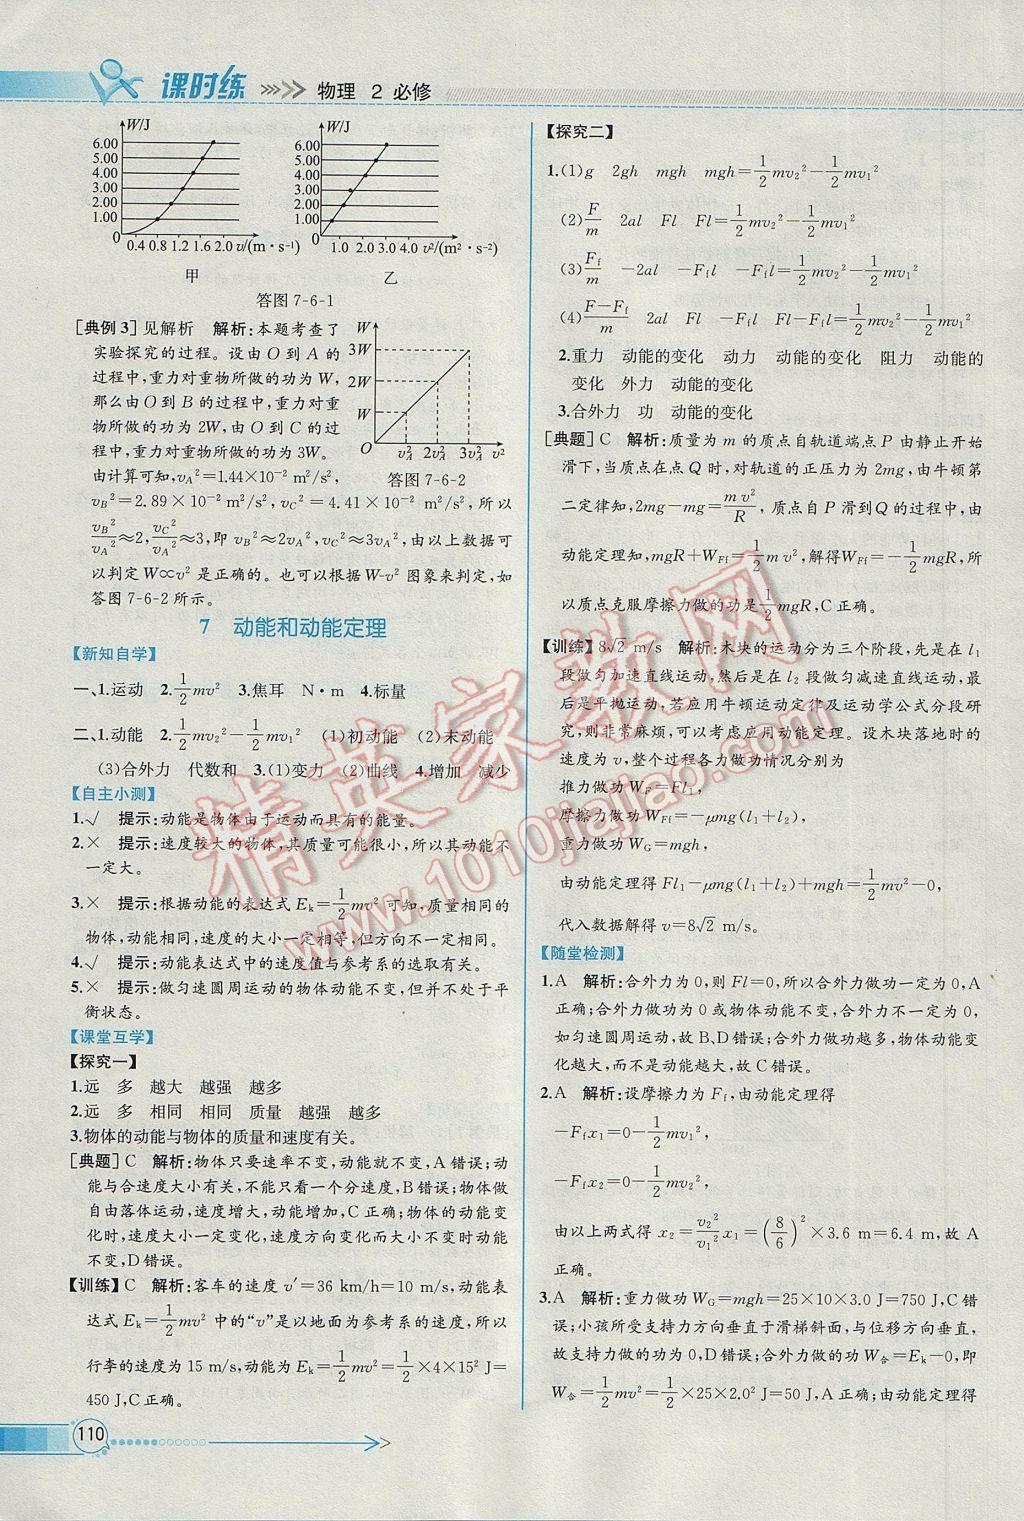 课时练 物理 2 必修
W/J
6.00
5.00
4.00
3.00
2.00
1.00
0
0.4 0.8 1.2 1.6 2.0 v/(m·s⁻¹)
甲
W/J
6.00
5.00
4.00
3.00
2.00
1.00
0
1.0 2.0 3.0 4.0 v²/(m²·s⁻²)
乙
答图7-6-1
[典例3]见解析 解析:本题考查了
实验探究的过程。设由O到A的
过程中,重力对重物所做的功为W,
那么由O到B的过程中,重力对重
物所做的功为2W,由O到C的过
程中,重力对重物所做的功为3W。
由计算可知,v_A²=1.44×10⁻² m²/s²,
W
3W
2W
W
O v_A² 2v_A² 3v_A² v²
答图7-6-2
v_B²=2.89×10⁻² m²/s²,v_C²=4.41×10⁻² m²/s²,所以
v_B²/v_A²≈2,v_C²/v_A²≈3,即v_B²≈2v_A²,v_C²≈3v_A²,由以上数据可
以判定W∝v²是正确的。也可以根据W-v²图象来判定,如
答图7-6-2所示。
7 动能和动能定理
【新知自学】
一、1.运动 2.1/2mv² 3.焦耳 N·m 4.标量
二、1.动能 2.1/2mv₂²-1/2mv₁² (1)初动能 (2)末动能
(3)合外力 代数和 3.(1)变力 (2)曲线 4.增加 减少
【自主小测】
1.√ 提示:动能是物体由于运动而具有的能量。
2.× 提示:速度较大的物体,其质量可能很小,所以其动能不
一定大。
3.× 提示:根据动能的表达式E_k=1/2mv²可知,质量相同的
物体,动能相同,速度的大小一定相等,但方向不一定相同。
4.√ 提示:动能表达式中的速度值与参考系的选取有关。
5.× 提示:做匀速圆周运动的物体动能不变,但并不处于平
衡状态。
【课堂互学】
【探究一】
1.远 多 越大 越强 越多
2.远 多 相同 相同 质量 越强 越多
3.物体的动能与物体的质量和速度有关。
[典题]C 解析:物体只要速率不变,动能就不变,A错误;动
能与合速度大小有关,不能只看一个分速度,B错误;物体做
自由落体运动,速度增大,动能增加,C正确;物体的动能变
化时,速度大小一定变化,速度方向变化而大小不变时动能
不变,D错误。
【训练】C 解析:客车的速度v′=36 km/h=10 m/s,动能表
达式E_k=1/2mv²中的“v”是以地面为参考系的速度,所以
行李的速度为15 m/s,动能为E_k=1/2mv²=1/2×4×15² J=
450 J,C正确。
【探究二】
1.(1)g 2gh mgh mgh=1/2mv₂²-1/2mv₁²
(2)F/m 2al Fl Fl=1/2mv₂²-1/2mv₁²
(3)F_f/m -2al -F_fl -F_fl=1/2mv₂²-1/2mv₁²
(4)F-F_f/m 2al Fl -F_fl Fl-F_fl=1/2mv₂²-1/2mv₁²
2.重力 动能的变化 动力 动能的变化 阻力 动能的
变化 外力 动能的变化
3.合外力 功 动能的变化
[典题]C 解析:质量为m的质点自轨道端点P由静止开始
滑下,当质点在点Q时,对轨道的正压力为2mg,由牛顿第
二定律知,2mg-mg=mv²/R,质点自P滑到Q的过程中,由
动能定理知,mgR+W_Ff=1/2mv²,解得W_Ff=-1/2mgR,所
以质点克服摩擦力做的功是1/2mgR,C正确。
【训练】8√2 m/s 解析:木块的运动分为三个阶段,先是在l₁
段做匀加速直线运动,然后是在l₂段做匀减速直线运动,最
后是平抛运动,若应用牛顿运动定律及运动学公式分段研
究,则非常麻烦,可以考虑应用动能定理。设木块落地时的
速度为v,整个过程各力做功情况分别为
推力做功W_F=Fl₁,
摩擦力做功W_Ff=-μmg(l₁+l₂),
重力做功W_G=mgh,
由动能定理得Fl₁-μmg(l₁+l₂)+mgh=1/2mv²-0,
代入数据解得v=8√2 m/s。
【随堂检测】
1.A 解析:合外力为0,则Fl=0,所以合外力做功一定为0,A
正确;合外力做功为0或物体动能不变,合外力不一定为0,
如匀速圆周运动,故B、D错误;合外力做功越多,物体动能变
化越大,而不是动能越大,故C错误。
2.A 解析:设摩擦力为F_f,由动能定理得
-F_fx₁=0-1/2mv₁²,
-F_fx₂=0-1/2mv₂²,
由以上两式得x₂=v₂²/v₁²x₁=(8/6)²×3.6 m=6.4 m,故A
正确。
3.A 解析:重力做功W_G=mgh=25×10×3.0 J=750 J,C错
误;小孩所受支持力方向垂直于滑梯斜面,与位移方向垂直,
故支持力做的功为0,D错误;合外力做的功W_合=E_k-0,即
W_合=1/2mv²=1/2×25×2.0² J=50 J,A正确;由动能定理得
110
精英家教网
www.1010jiajiao.com